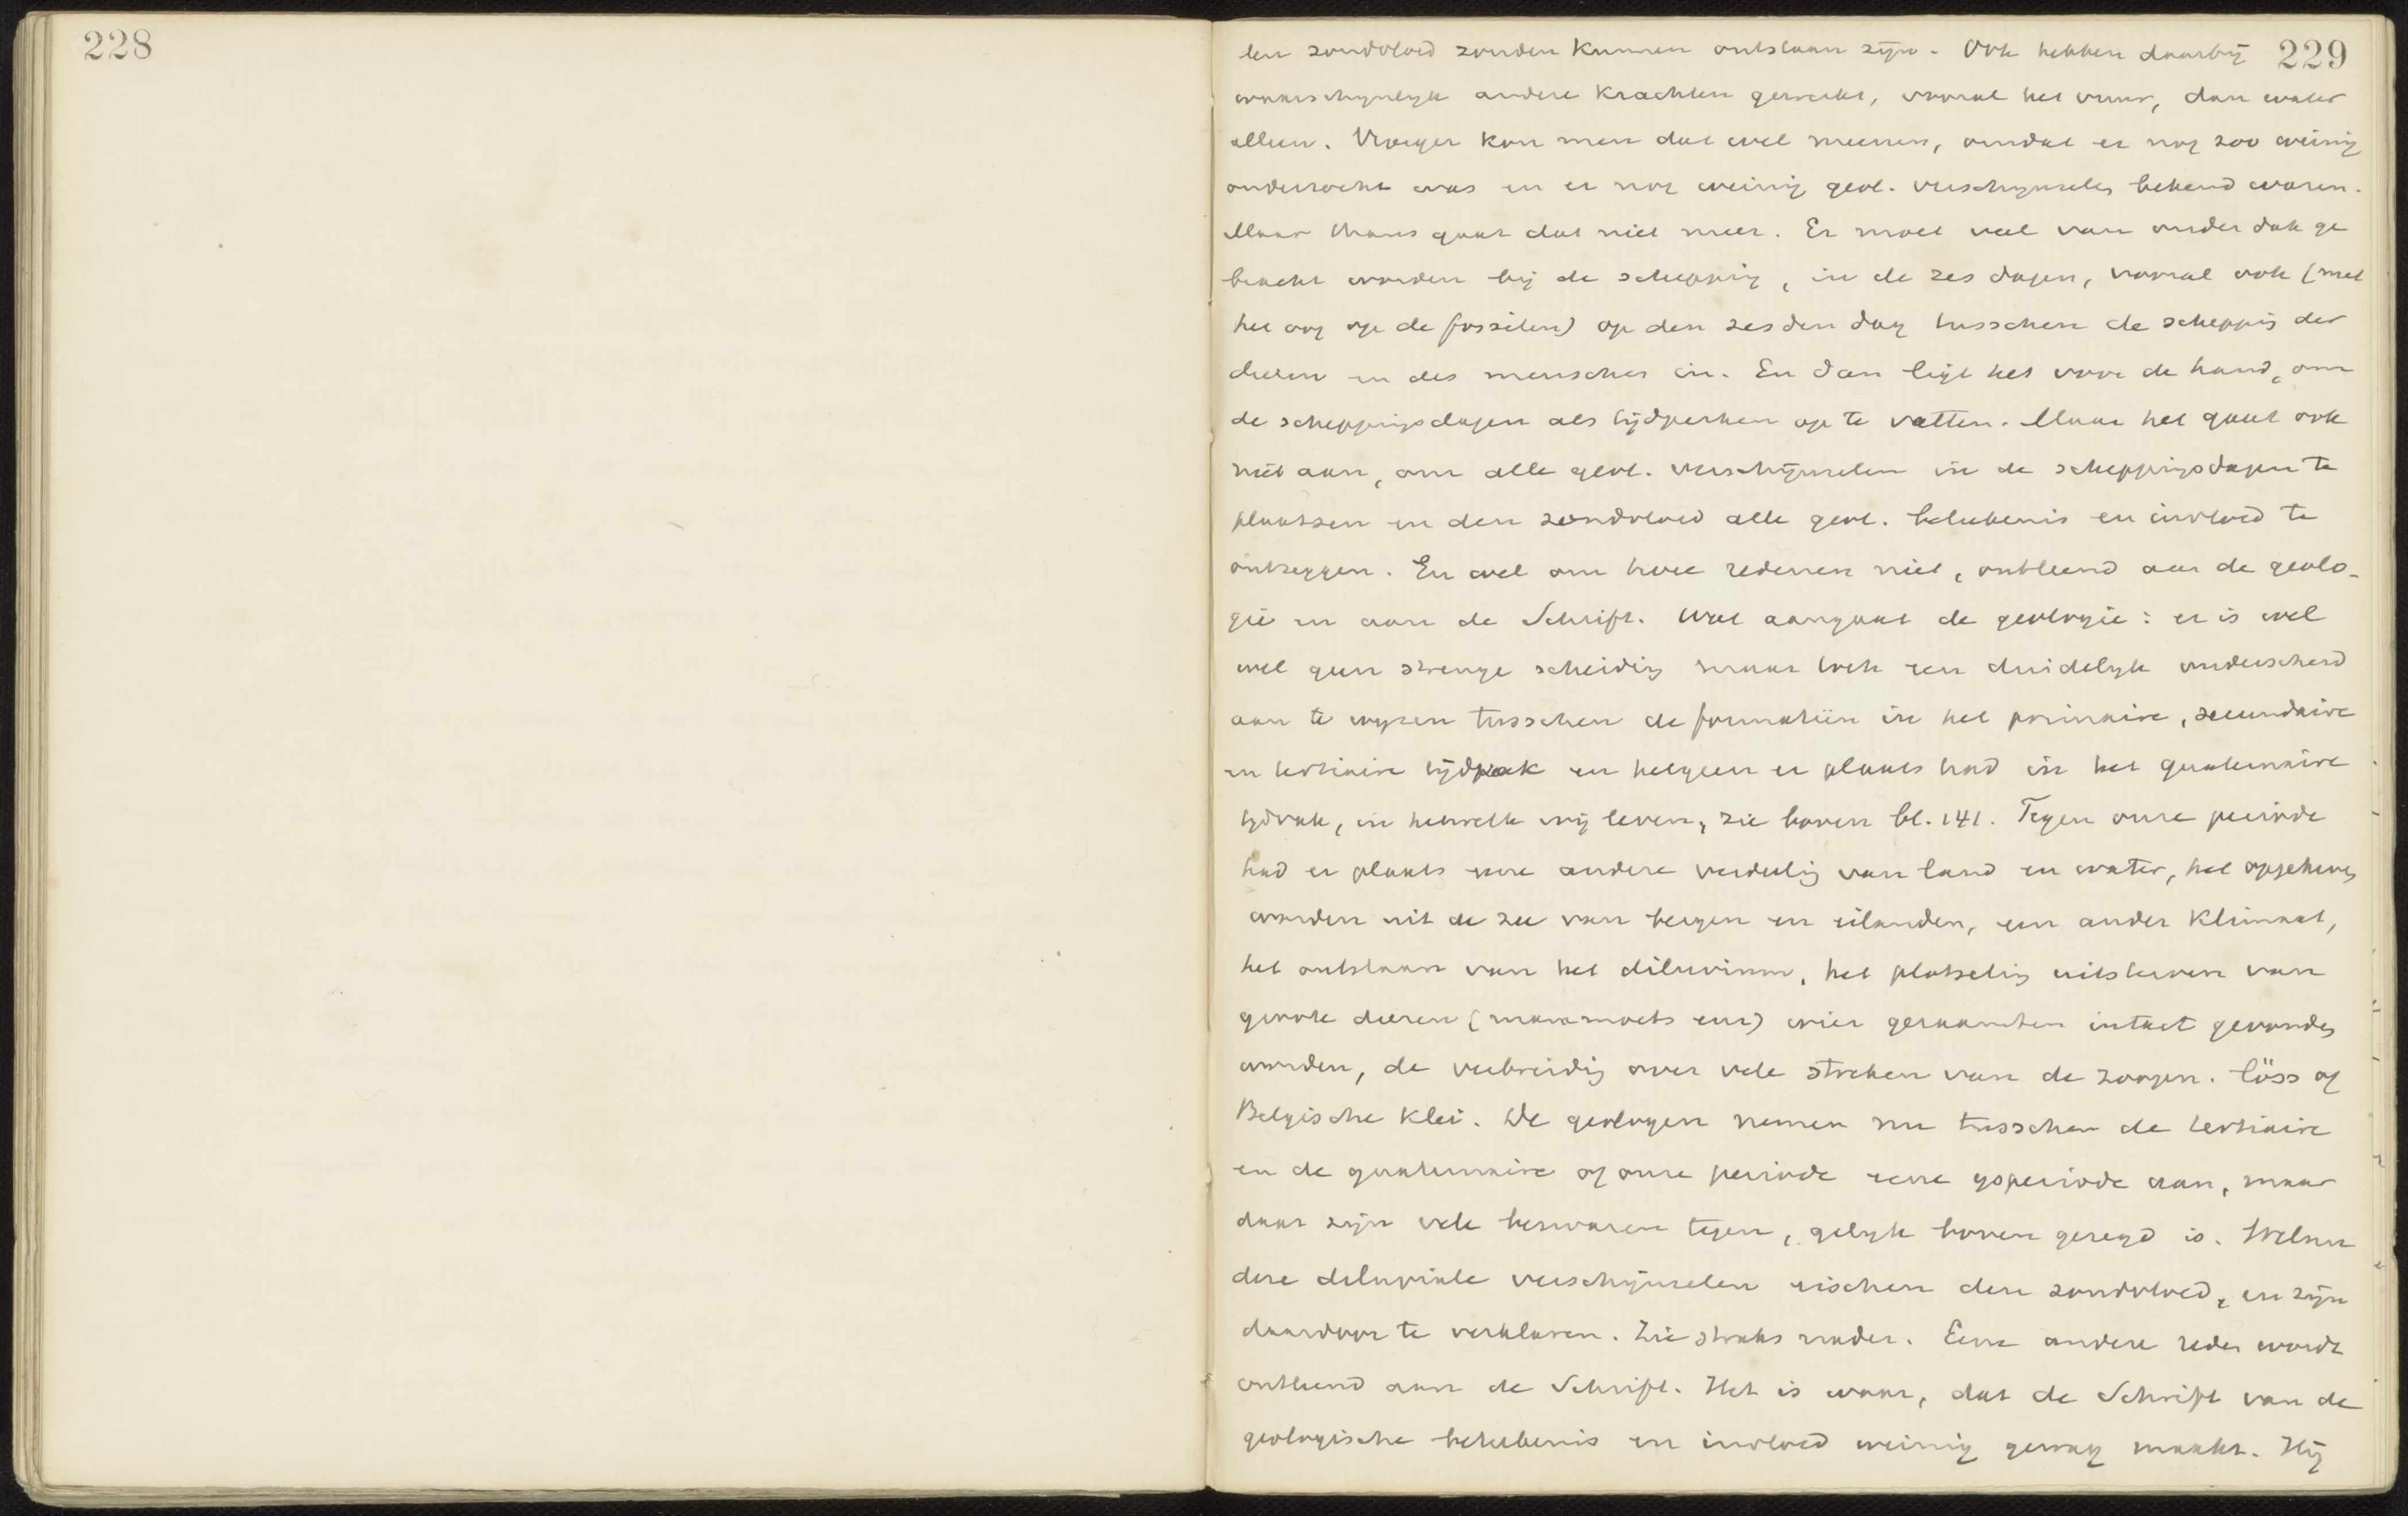 228
229
den zondvloed zouden kunnen ontstaan zijn. Ook hebben daarbij
waarschynlyk andere krachten gewerkt, vooral het vuur, dan water
alleen. Vroeger kon men dat wel meenen, omdat er nog zoo weinig
onderzocht was en er nog weinig geol. verschynselen bekend waren.
Maar thans gaat dat niet meer. Er moet veel van onder dak ge
bracht worden bij de schepping, in de zes dagen, vooral ook (met
het oog op de fossilen) op den zesden dag tusschen de schepping der
dieren en des menschen in. En dan ligt het voor de hand, om
de scheppingsdagen als tijdperken op te vatten. Maar het gaat ook
niet aan, om alle geol. verschijnselen in de scheppingsdagen te
plaatsen en den zondvloed alle geol. beteekenis en invloed te
ontzeggen. En wel om twee redenen niet, ontleend aan de geolo-
gie en aan de Schrift. Wat aangaat de geologie: er is wel
wel geen strenge scheiding maar toch een duidelyk onderscheid
aan te wyzen tusschen de formatiën in het primaire, secundaire
en tertiaire tijdvak en hetgeen er plaats had in het quaternaire
tydvak, in hetwelk wij leven, zie boven bl. 141. Tegen onze periode
had er plaats eene andere verdeling van land en water, het opgeheven
worden uit de zee van bergen en eilanden, een ander klimaat,
het ontstaan van het diluvium, het plotseling uitsterven van
groote dieren (mammoets enz) wier geraamten intact gevonden
worden, de verbreiding over vele streken van de zoogen. löss of
Belgische klei. De geologen nemen nu tusschen de tertiaire
en de quaternaire of onze periode eene ysperiode aan, maar
daar zijn vele bezwaren tegen, gelyk boven gezegd is. Welnu
deze diluviale verschijnselen eischen den zondvloed, en zijn
daardoor te verklaren. Zie straks nader. Eene andere reden wordt
ontleend aan de Schrift. Het is waar, dat de Schrift van de
geologische beteekenis en invloed weinig gewag maakt. Hij